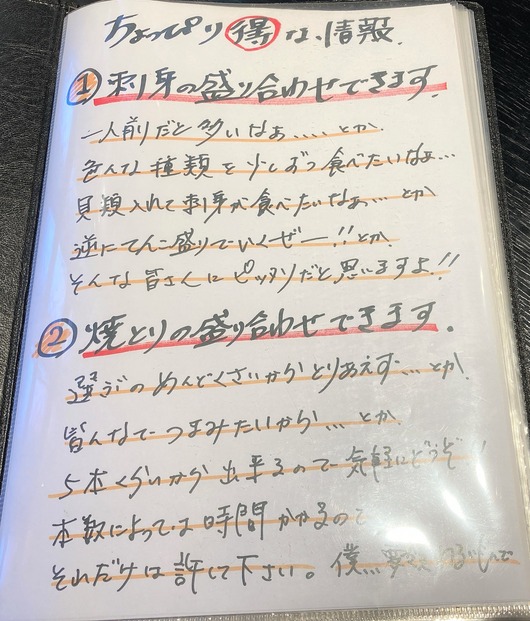 ちょっぴり得な情報.
① 刺身の盛り合わせできます.
一人前だと多いなぁ.... とか.
色んな種類を少しずつ食べたいなぁ...
貝類入れて刺身が食べたいなぁ... とか
逆にてんこ盛りでいくぜー!!とか.
そんな皆さんにピッタリだと思いますよ!!
② 焼とりの盛り合わせできます.
選ぶのめんどくさいからとりあえず...とか.
皆んなでつまみたいから...とか.
5本くらいから出来るので気軽にどうぞ!!
本数によっては時間かかるので
それだけは許して下さい。僕...